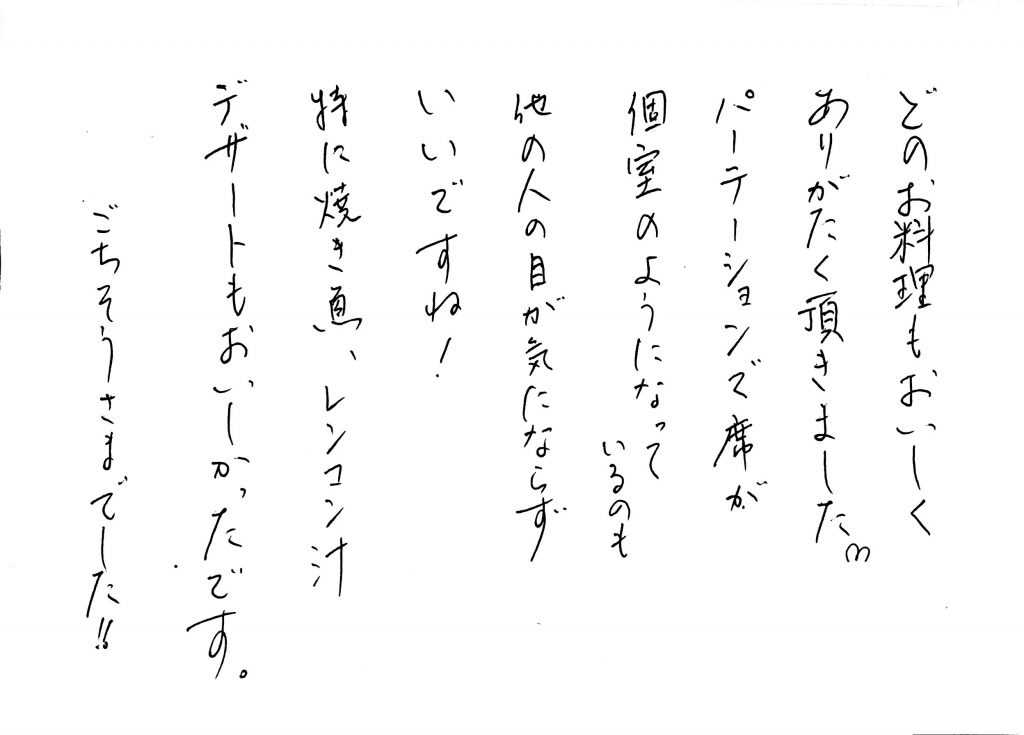 どのお料理もおいしく
ありがたく頂きました
パーテーションで席が
個室のようになって
いるのも
他の人の目が気にならず
いいですね!
特に焼き魚、レンコン汁
デザートもおいしかったです。
ごちそうさまでした!!